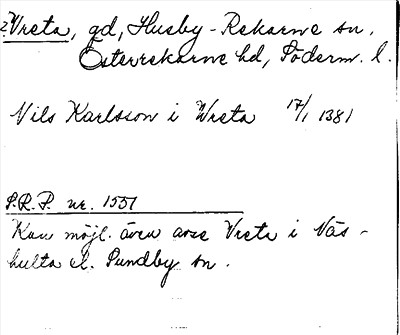 ? Vreta, gd, Husby-Rekarne sn,
Österrekarne hd, Söderm. l.
Nils Karlsson i Wreta 17/1 1381
S.R.P. nr. 1551
Kan möjl. även avse Vreta i Näs-
hulta el. Sundby sn.